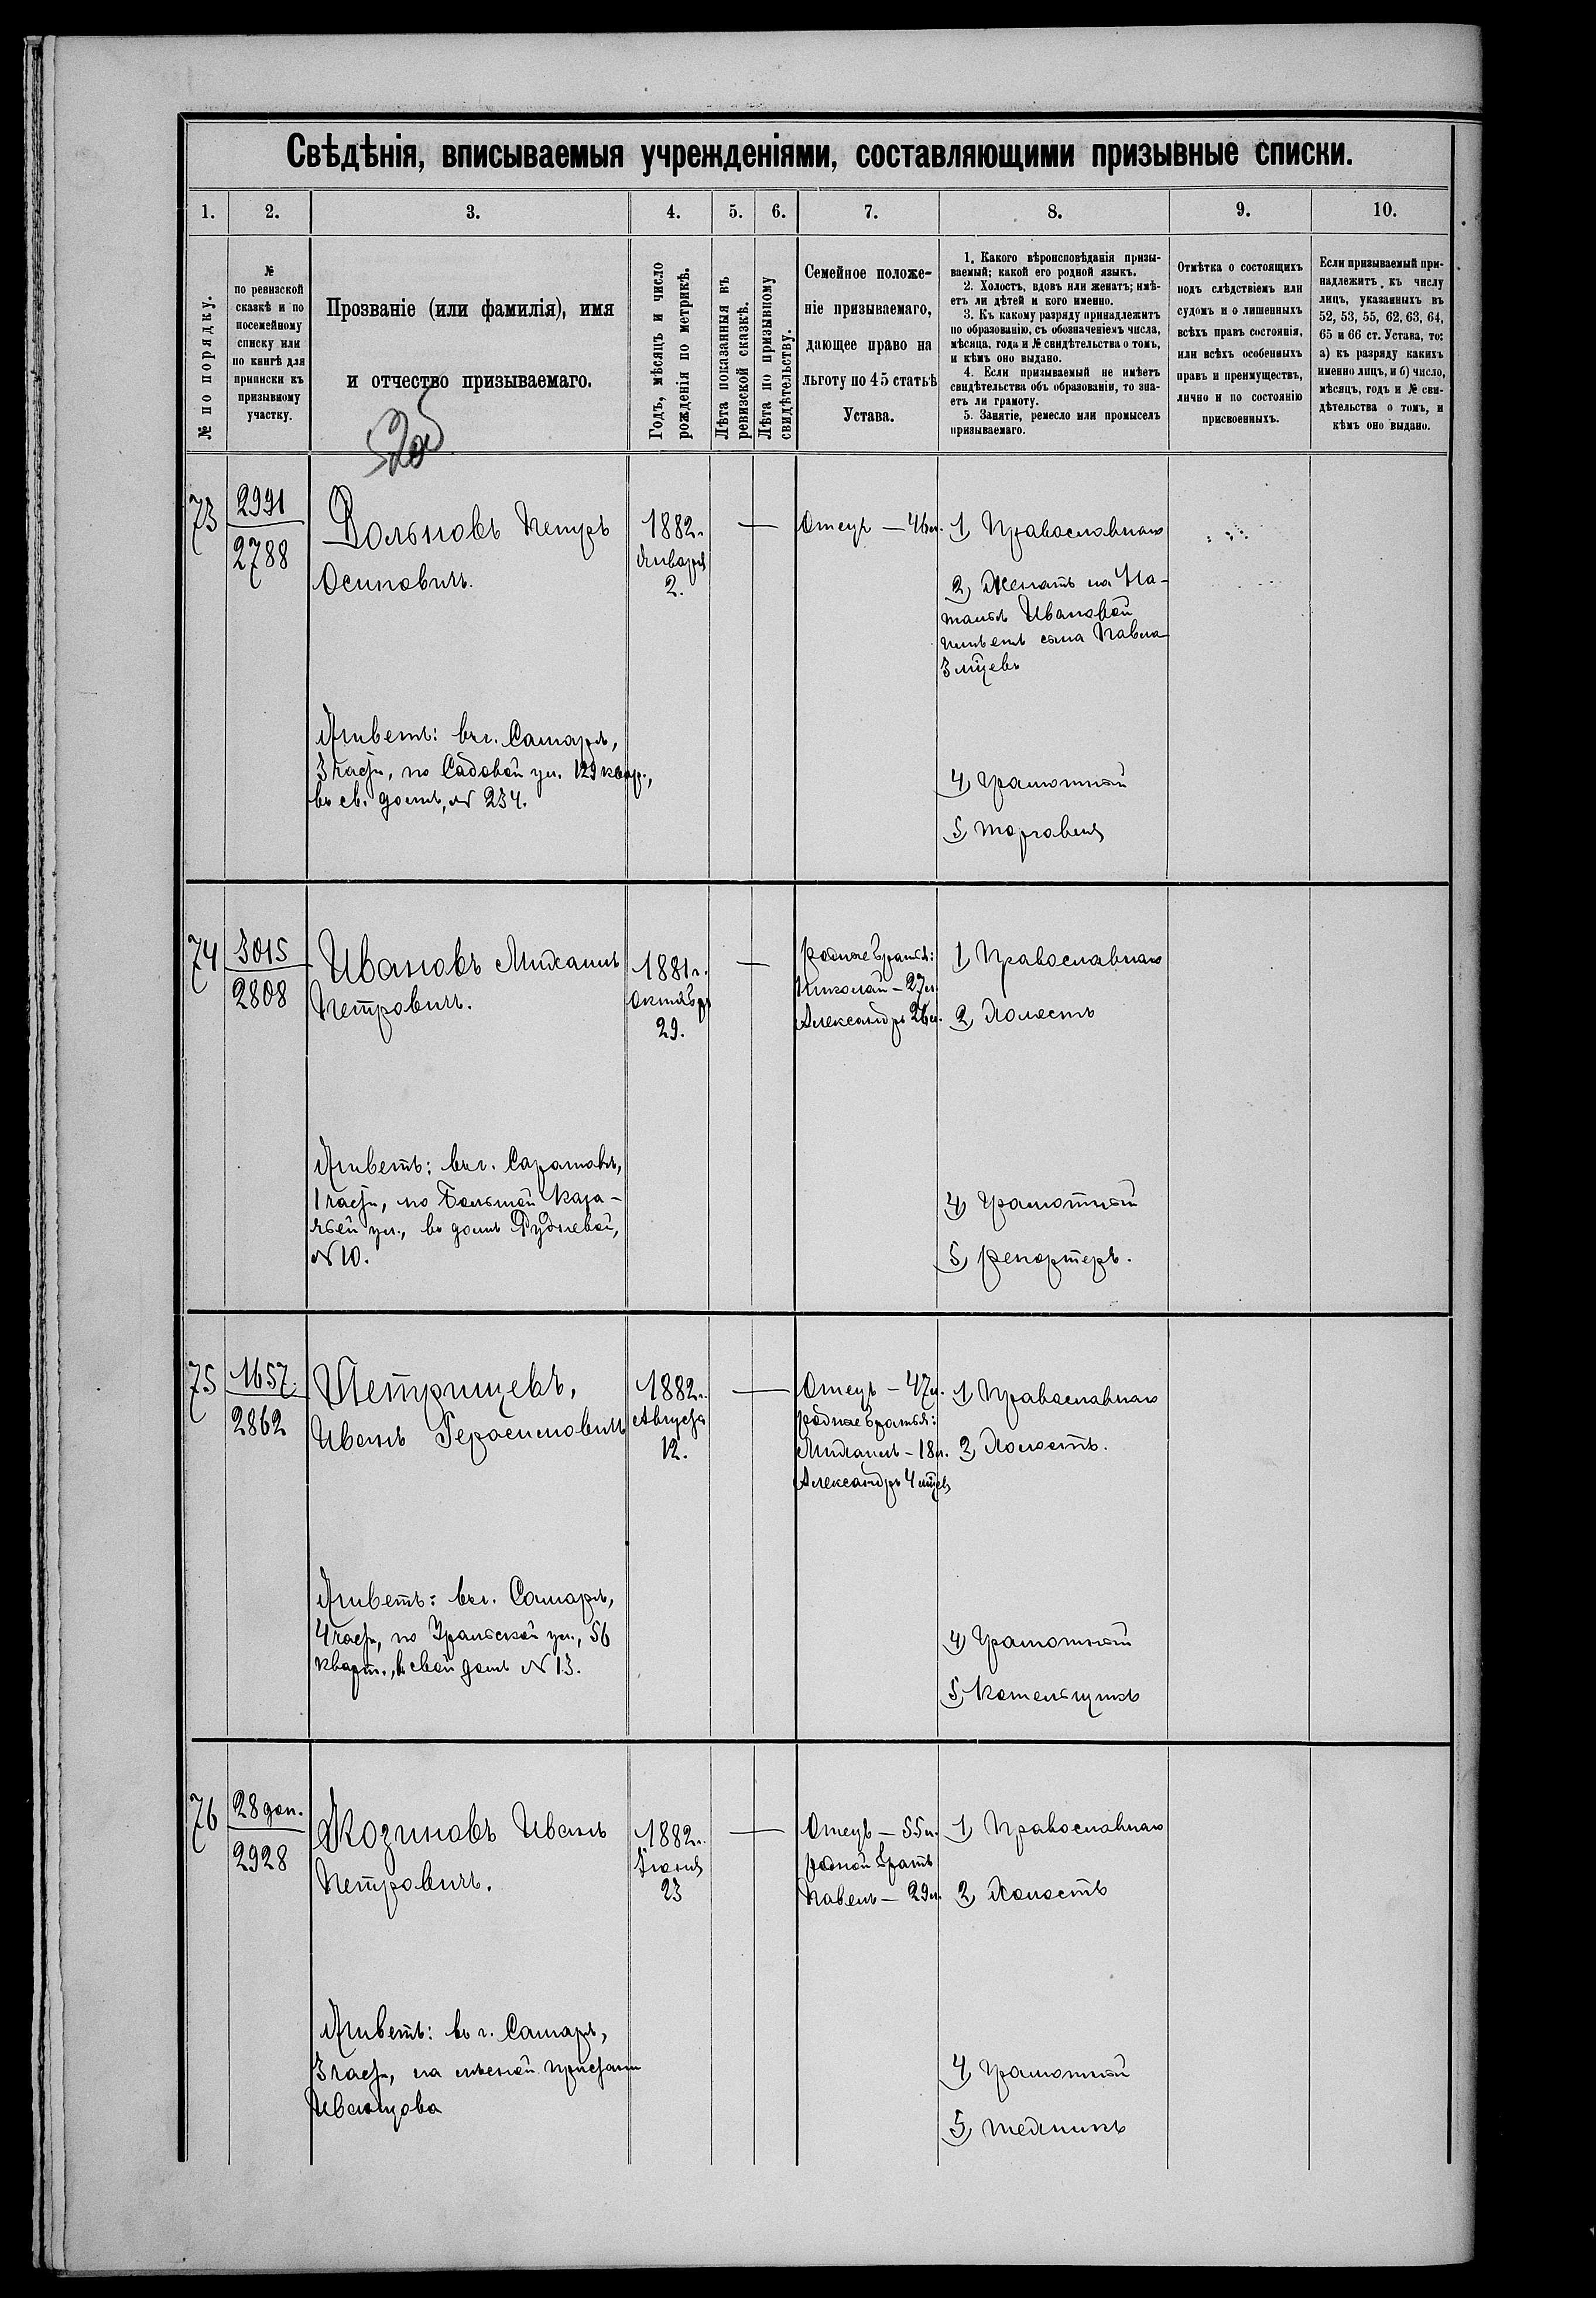 Свѣдѣнія, вписываемыя учрежденіями, составляющими призывные списки.
1. 2. 3. 4. 5. 6. 7. 8. 9. 10.
№ по порядку.
№
по ревизской
сказкѣ и по
посемейному
списку или
по книгѣ для
приписки къ
призывному
участку.
Прозваніе (или фамилія), имя
и отчество призываемаго.
Годъ, мѣсяцъ и число
рожденія по метрикѣ.
Лѣта показанныя въ
ревизской сказкѣ.
Лѣта по призывному
свидѣтельству.
Семейное положе-
ніе призываемаго,
дающее право на
льготу по 45 статьѣ
Устава.
1. Какого вѣроисповѣданія призы-
ваемый; какой его родной языкъ.
2. Холостъ, вдовъ или женатъ; имѣ-
етъ ли дѣтей и кого именно.
3. Къ какому разряду принадлежитъ
по образованію, съ обозначеніемъ числа,
мѣсяца, года и № свидѣтельства о томъ,
и кѣмъ оно выдано.
4. Если призываемый не имѣетъ
свидѣтельства объ образованіи, то зна-
етъ ли грамоту.
5. Занятіе, ремесло или промыселъ
призываемаго.
Отмѣтка о состоящихъ
подъ слѣдствіемъ или
судомъ и о лишенныхъ
всѣхъ правъ состоянія,
или всѣхъ особенныхъ
правъ и преимуществъ,
лично и по состоянію
присвоенныхъ.
Если призываемый при-
надлежитъ къ числу
лицъ, указанныхъ въ
52, 53, 55, 62, 63, 64,
65 и 66 ст. Устава, то:
а) къ разряду какихъ
именно лицъ, и б) число,
мѣсяцъ, годъ и № сви-
дѣтельства о томъ, и
кѣмъ оно выдано.
73
2991
2788
Дольновъ Петръ
Осиповичъ.
Живетъ: въ г. Самарѣ,
3 части, по Садовой ул. 129 квар.,
въ св. домѣ, № 234.
1882 г.
Января
2.
Отецъ — 46 л.
1) Православнаго
2) Женатъ на На-
тальѣ Ивановой
имѣетъ сына Павла
3 мѣцевъ
4) Грамотный
5) Торговецъ
74
3015
2808
Ивановъ Михаилъ
Петровичъ.
Живетъ: въ г. Саратовѣ,
1 части, по Большой Каза-
чьей ул., въ домѣ Рудневой,
№ 10.
1881 г.
Октября
29.
Родные братья:
Николай — 27 л.
Александръ 26 л.
1) Православнаго
2) Холостъ
4) Грамотный
5) репортеръ.
75
1657.
2862
Петрищевъ,
Иванъ Герасимовичъ
Живетъ: въ г. Самарѣ,
4 части, по Уральской ул., 56
кварт., въ свой домѣ № 13.
1882 г.
Августа
12.
Отецъ — 47 л.
родные братья:
Михаилъ — 18 л.
Александръ 4 мѣцев
1) Православнаго
2) Холостъ.
4) Грамотный
5) Котельщикъ
76
28 доп.
2928
Козиновъ Иванъ
Петровичъ.
Живетъ: въ г. Самарѣ,
3 части, на лѣсной пристани
1882 г.
Іюня
23
Отецъ — 55 л.
родной братъ
Павелъ — 29 л.
1) Православнаго
2) Холостъ
4) Грамотный
5)